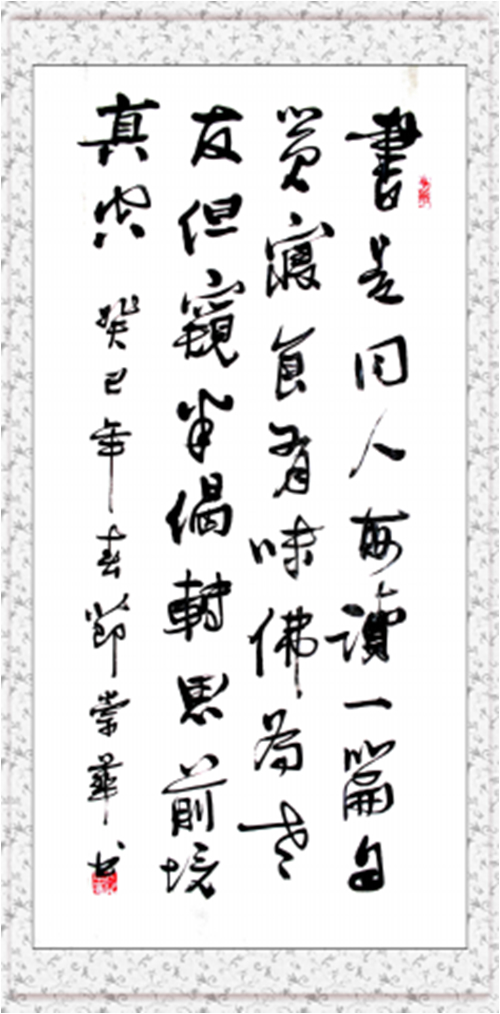 書是同人每讀一篇自
觉寢食有味佛為老
友但窺半偈輒思前境
真空 癸巳年春節華书